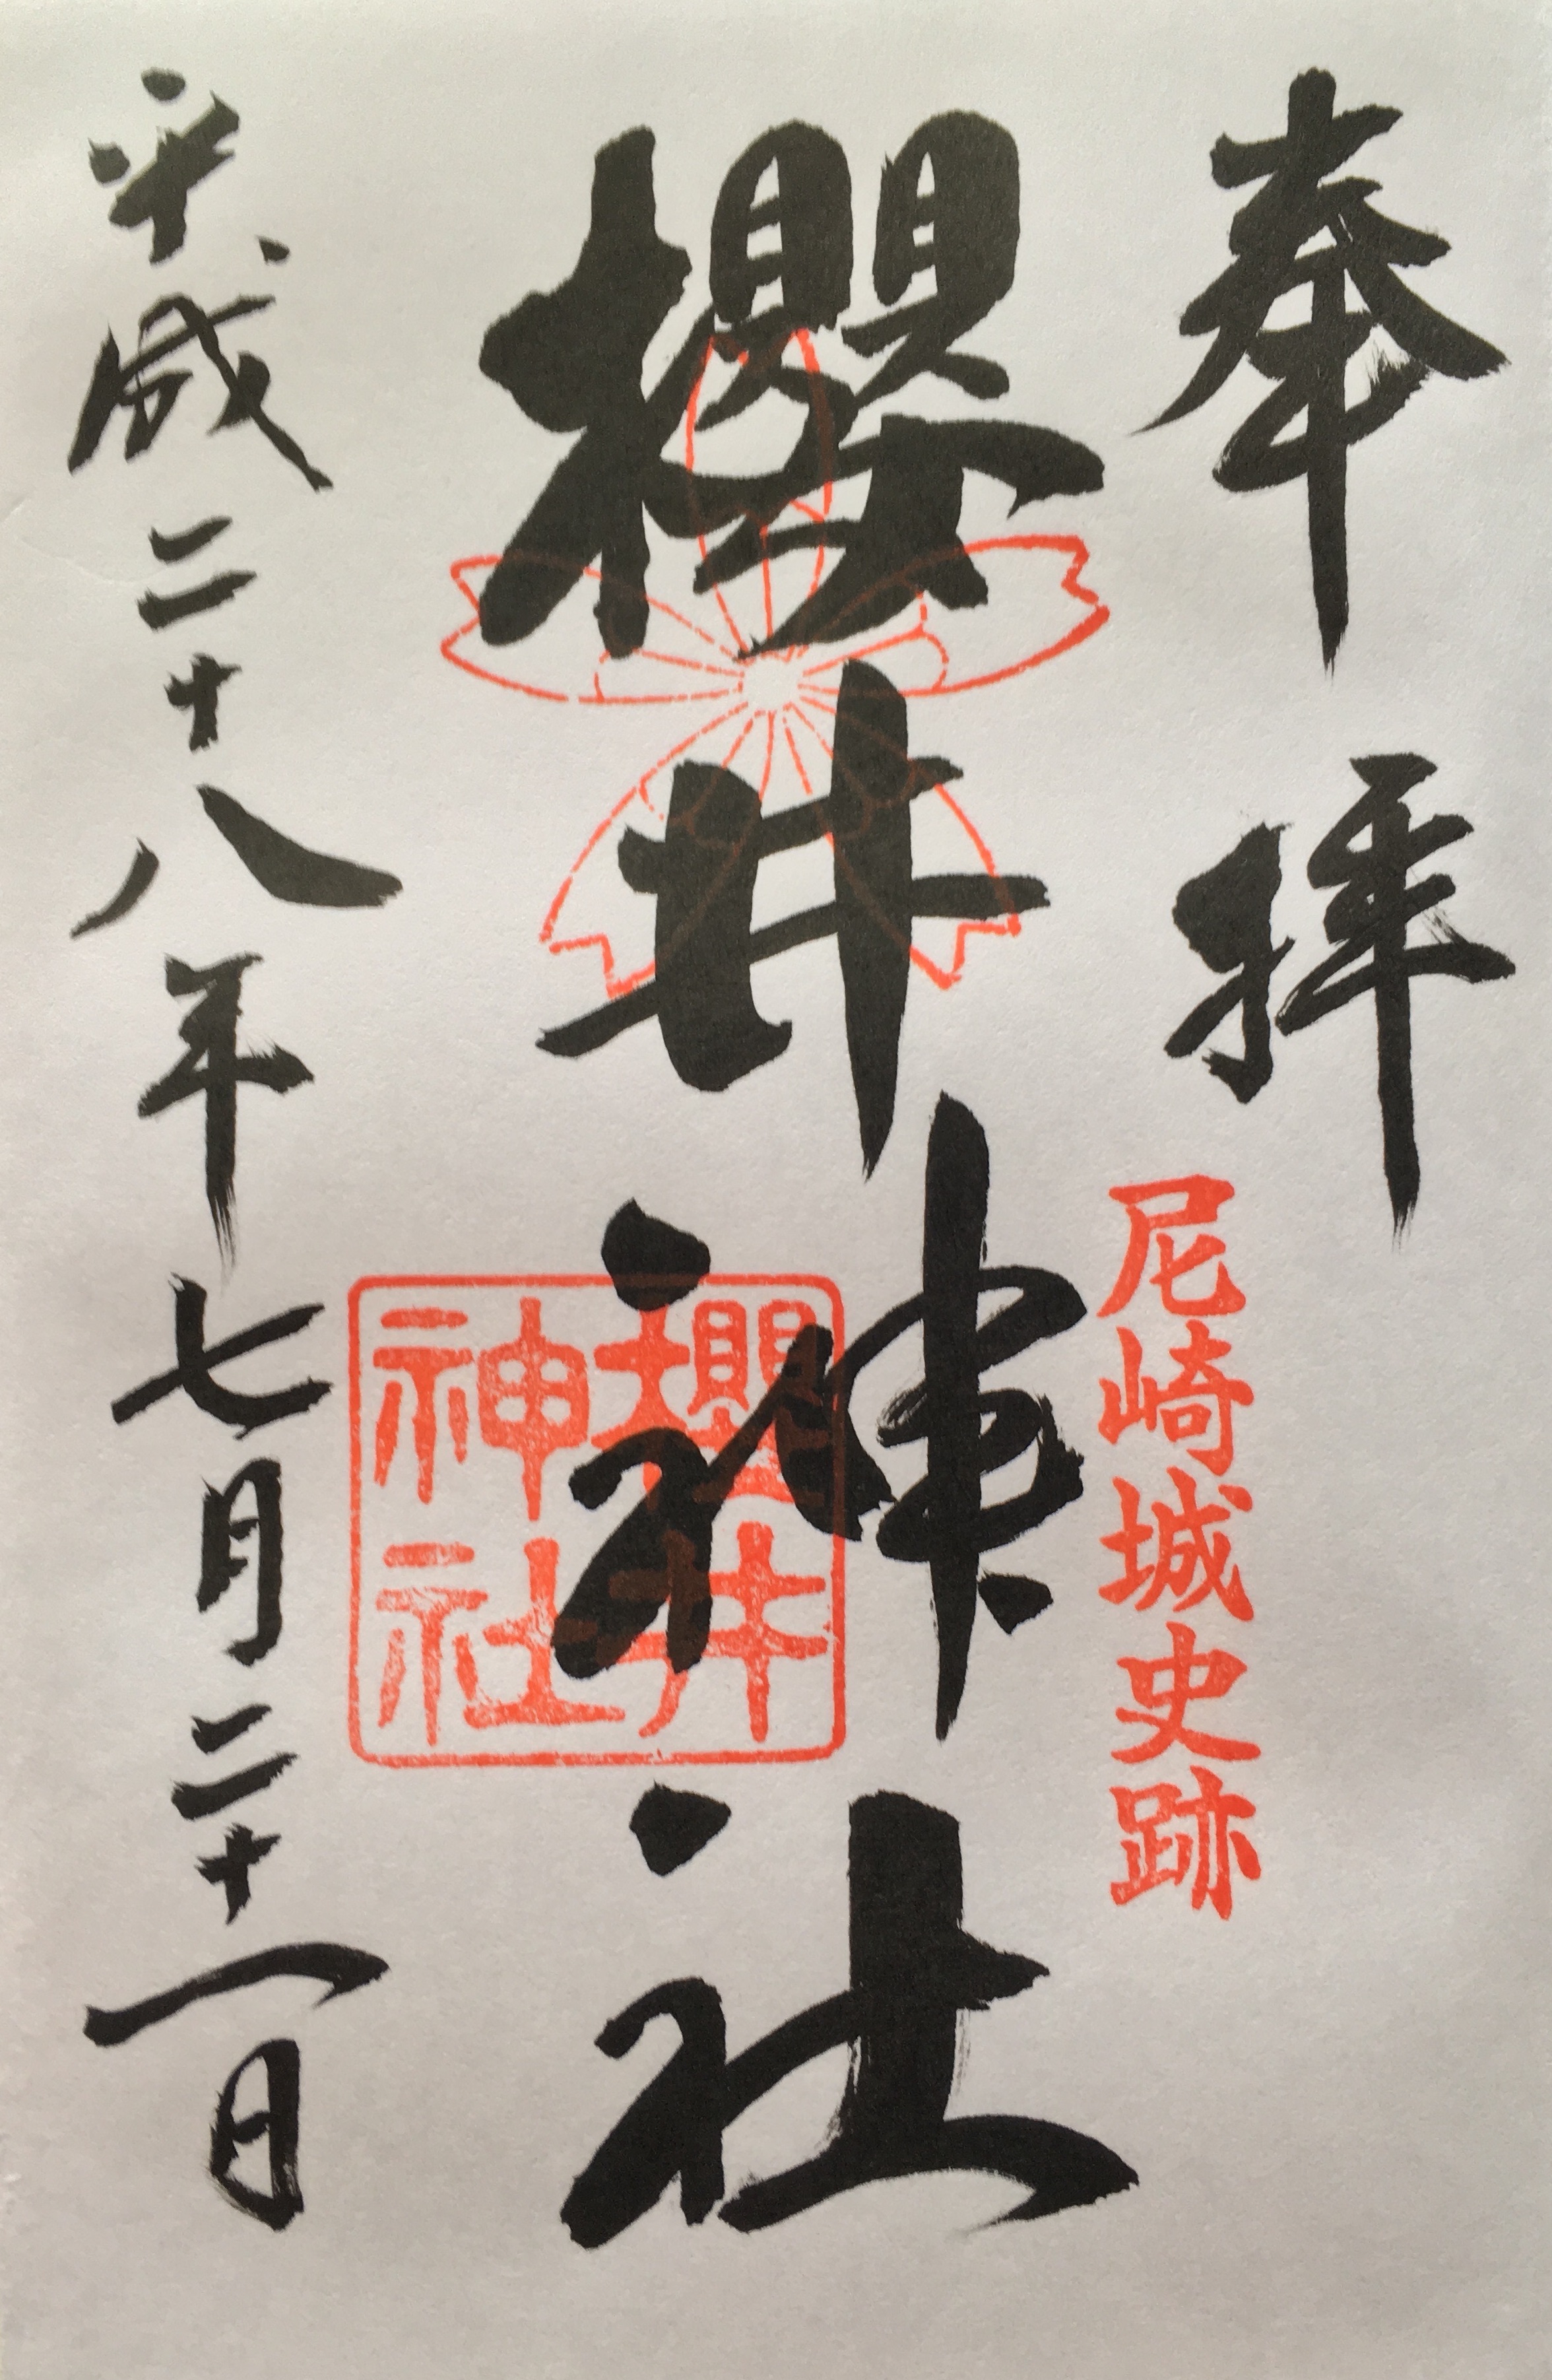 奉拝
尼崎城史跡
櫻井神社
櫻井
神社
平成二十八年七月二十一日